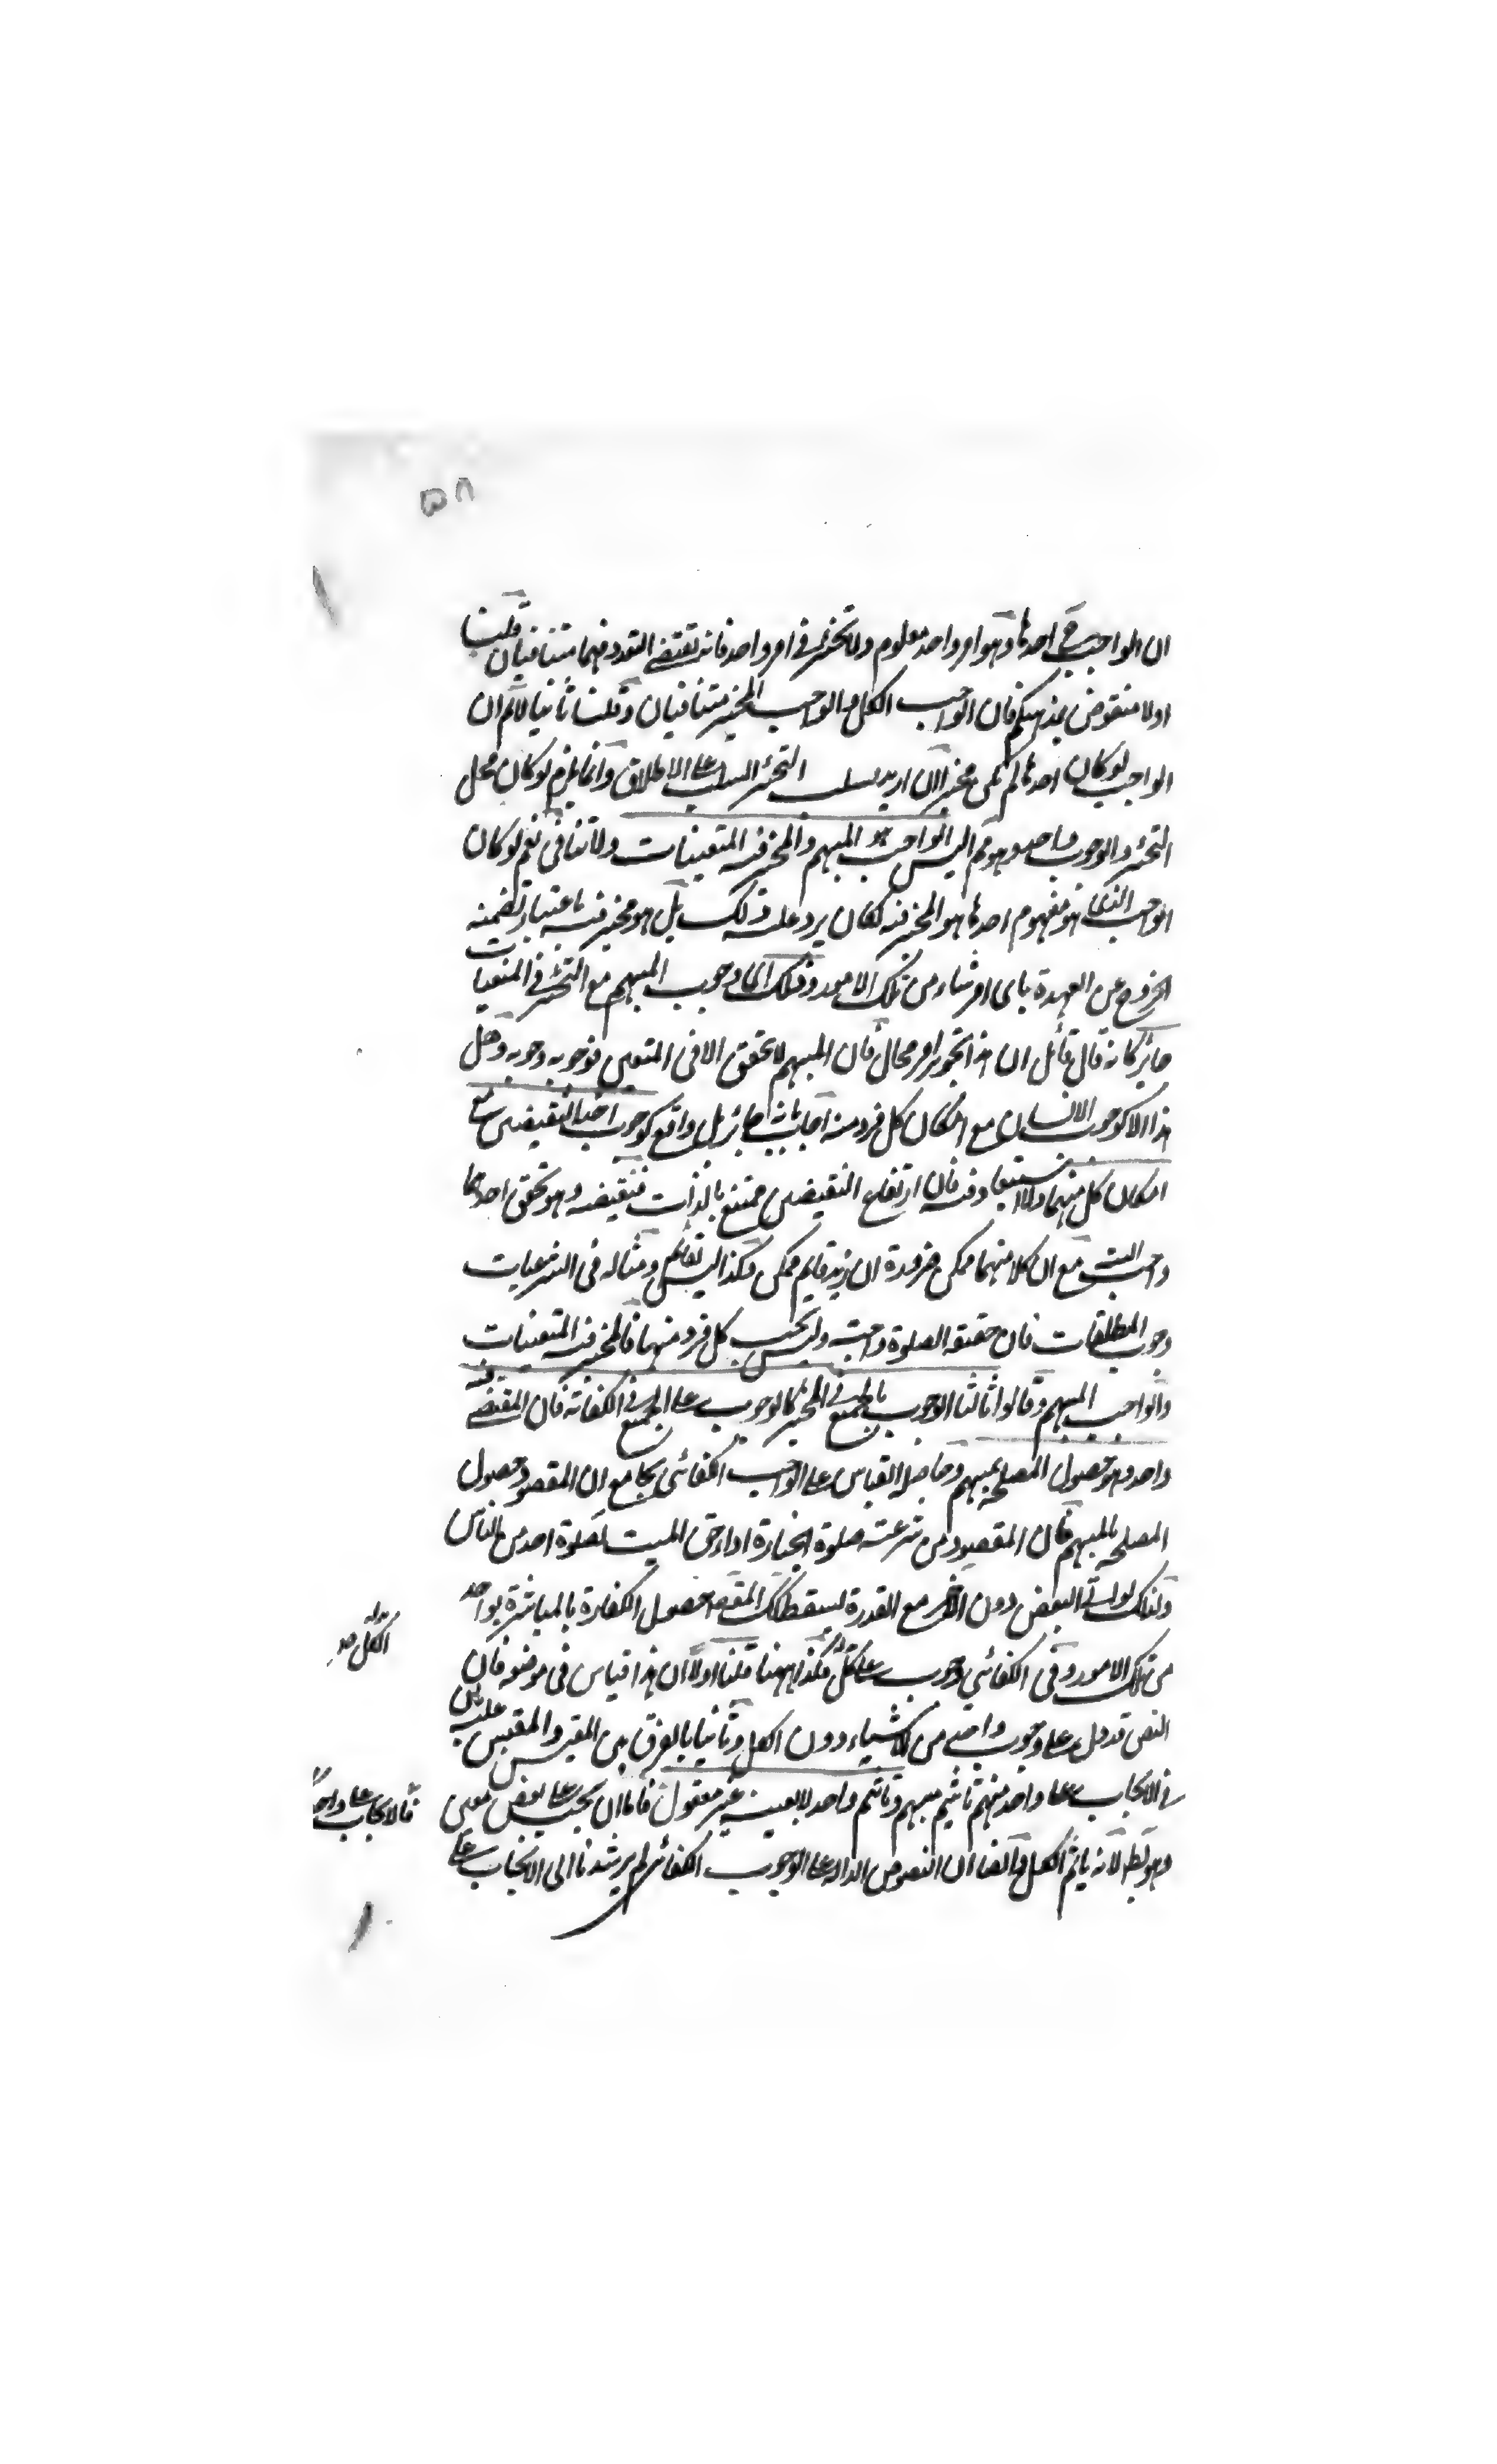 ٥٨
ان الواجب ح احدها وهو امر واحد معلوم ولا تخير في امر واحد فانه يقتضي التعدد فهما متنافيان قلنا
اولا منقوض بمذهبكم فان الواجب الكل والواجب المخير متنافيان وقلنا ثانيا لانم ان
الواجب لو كان احدها لم يكن مخيرا لان اريد بسلب التخير السلب على الاطلاق وانما يلزم لو كان محل
التخير والوجوب واحد وهو مم اليس الواجب هو المبهم والمخير فيه المتعينات ولا تنافي نعم لو كان
الواجب الذي هو مفهوم احدها هو المخير فيه لكان يرد عليه ذلك بل هو مخير فيه باعتبار تضمنه
الخروج عن العهدة باى امر شاء من تلك الامور وذلك اى وجوب المبهم مع التخير في المتعينات
جائز كانه قال قائل ان هذا تجويز امر محال فان المبهم لا يتحقق الا في المتعين فوجوبه وجوبه وهل
هذا الا كوجوب الانسان مع امكان كل فرد منه اجاب بانه جائز بل واقع كوجوب احد النقيضين مع
امكان كل منهما ولا استبعاد فيه فان ارتفاع النقيضين ممتنع بالذات فنقيضه وهو تحقق احدهما
واجب البتة مع ان كلا منهما ممكن ضرورة ان زيد قايم ممكن وكذا ليس بقائم ومثاله في الشرعيات
وجوب المطلقات فان حقيقة الصلوة واجبة وليس يجب كل فرد منها فالمخير فيه المتعينات
والواجب المبهم وقالوا ثالثا الوجوب بالجميع في المخير كالوجوب على الجميع في الكفاية فان المقتضى فيه
واحد وهو حصول المصلحة بمبهم وحاصله القياس على الواجب الكفائي بجامع ان المقصود حصول
المصلحة بالمبهم فان المقصود من شرعية صلوة الجنازة اداء حق الميت بصلوة احد من الناس
ولذلك لو اتى البعض دون الاخر مع القدرة ليسقط كك المقصد حصول الكفارة بالمباشرة بواحد
من تلك الامور وفي الكفائي وجوب على كل فكذا ههنا قلنا اولا ان هذا قياس في موضوع فان
النص قد دل على وجوب واحد من الاشياء دون الكل وثانيا بالفرق بين المقيس والمقيس عليه بان
في الايجاب على واحد منهم تاثيم مبهم وتاثيم واحد لا بعينه غير معقول فاما ان يجب على بعض معين
وهو بط لانه ياثم الكل وايضا ان النصوص الدالة على الوجوب الكفائي لم يرشدنا الى الايجاب على
الكل
فالايجاب على واحد